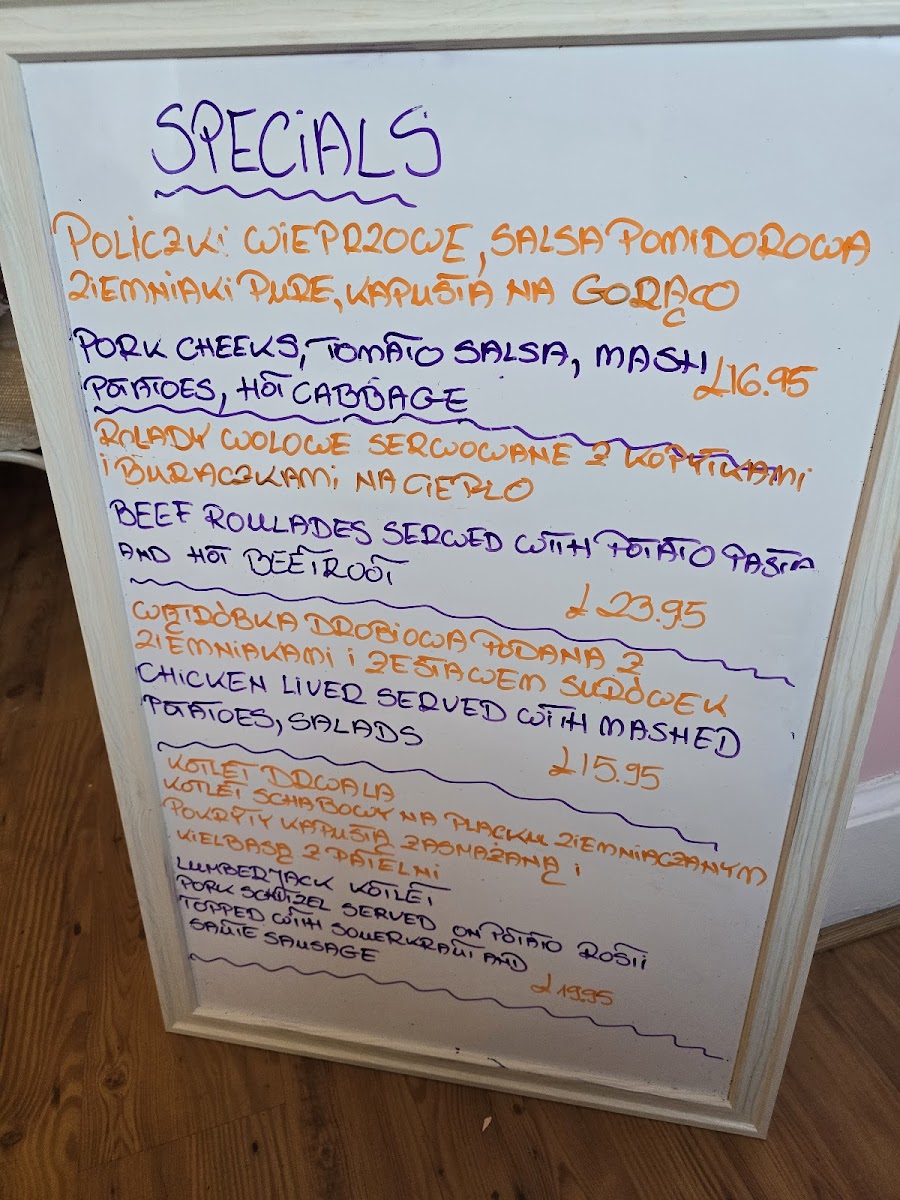 SPECIALS
POLICZKI WIEPRZOWE, SALSA POMIDOROWA
ZIEMNIAKI PURE, KAPUSTA NA GORĄCO
PORK CHEEKS, TOMATO SALSA, MASH
POTATOES, HOT CABBAGE
£16.95
ROLADY WOLOWE SERWOWANE Z KOPYTKAMI
I BURACZKAMI NA CIEPŁO
BEEF ROULADES SERVED WITH POTATO PASTA
AND HOT BEETROOT
£23.95
WĄTRÓBKA DROBIOWA PODANA Z
ZIEMNIAKAMI I ZESTAWEM SURÓWEK
CHICKEN LIVER SERVED WITH MASHED
POTATOES, SALADS
£15.95
KOTLET DRWALA
KOTLET SCHABOWY NA PLACKU ZIEMNIACZANYM
POKRYTY KAPUSTĄ ZASMAŻANĄ I
KIELBASĄ Z PATELNI
LUMBERJACK KOTLET
PORK SCHITZEL SERVED ON POTATO ROSTI
TOPPED WITH SOUERKRAUT AND
SAUTE SAUSAGE
£19.95